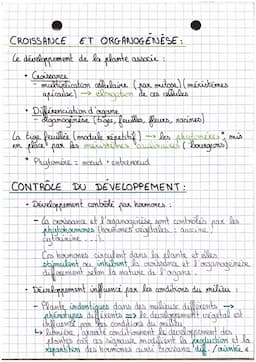 CROISSANCE ET ORGANOGÉNÈSE :
Le développement de la plante associe :
• Croissance
- multiplication cellulaire (par mitose) (méristèmes
apicales) → élongation de ces cellules
• Différenciation d'organe
- organogénèse (tiges, feuilles, fleurs, racines)
La tige feuillée (module répétitif) → les phytomères* mis
en place par les méristèmes (bourgeons)
* Phytomère = nœud + entrenœud
CONTRÔLE DU DÉVELOPPEMENT :
• Développement contrôlé par hormones :
- La croissance et l'organogénèse sont contrôlés par les
phytohormones (hormones végétales : auxine,
cytokinine ...).
Ces hormones circulent dans la plante et elles
stimulent ou inhibent la croissance et l'organogénèse
différemment selon la nature de l'organe.
• Développement influencé par les conditions du milieu :
- Plante identiques dans des milieux différents →
phénotypes différents => le développement végétal est
influencé par les conditions du milieu.
↳ lumière, gravité conditionnent le développement des
plantes car ces signaux modifient la production et la
répartition des hormones ainsi croissance